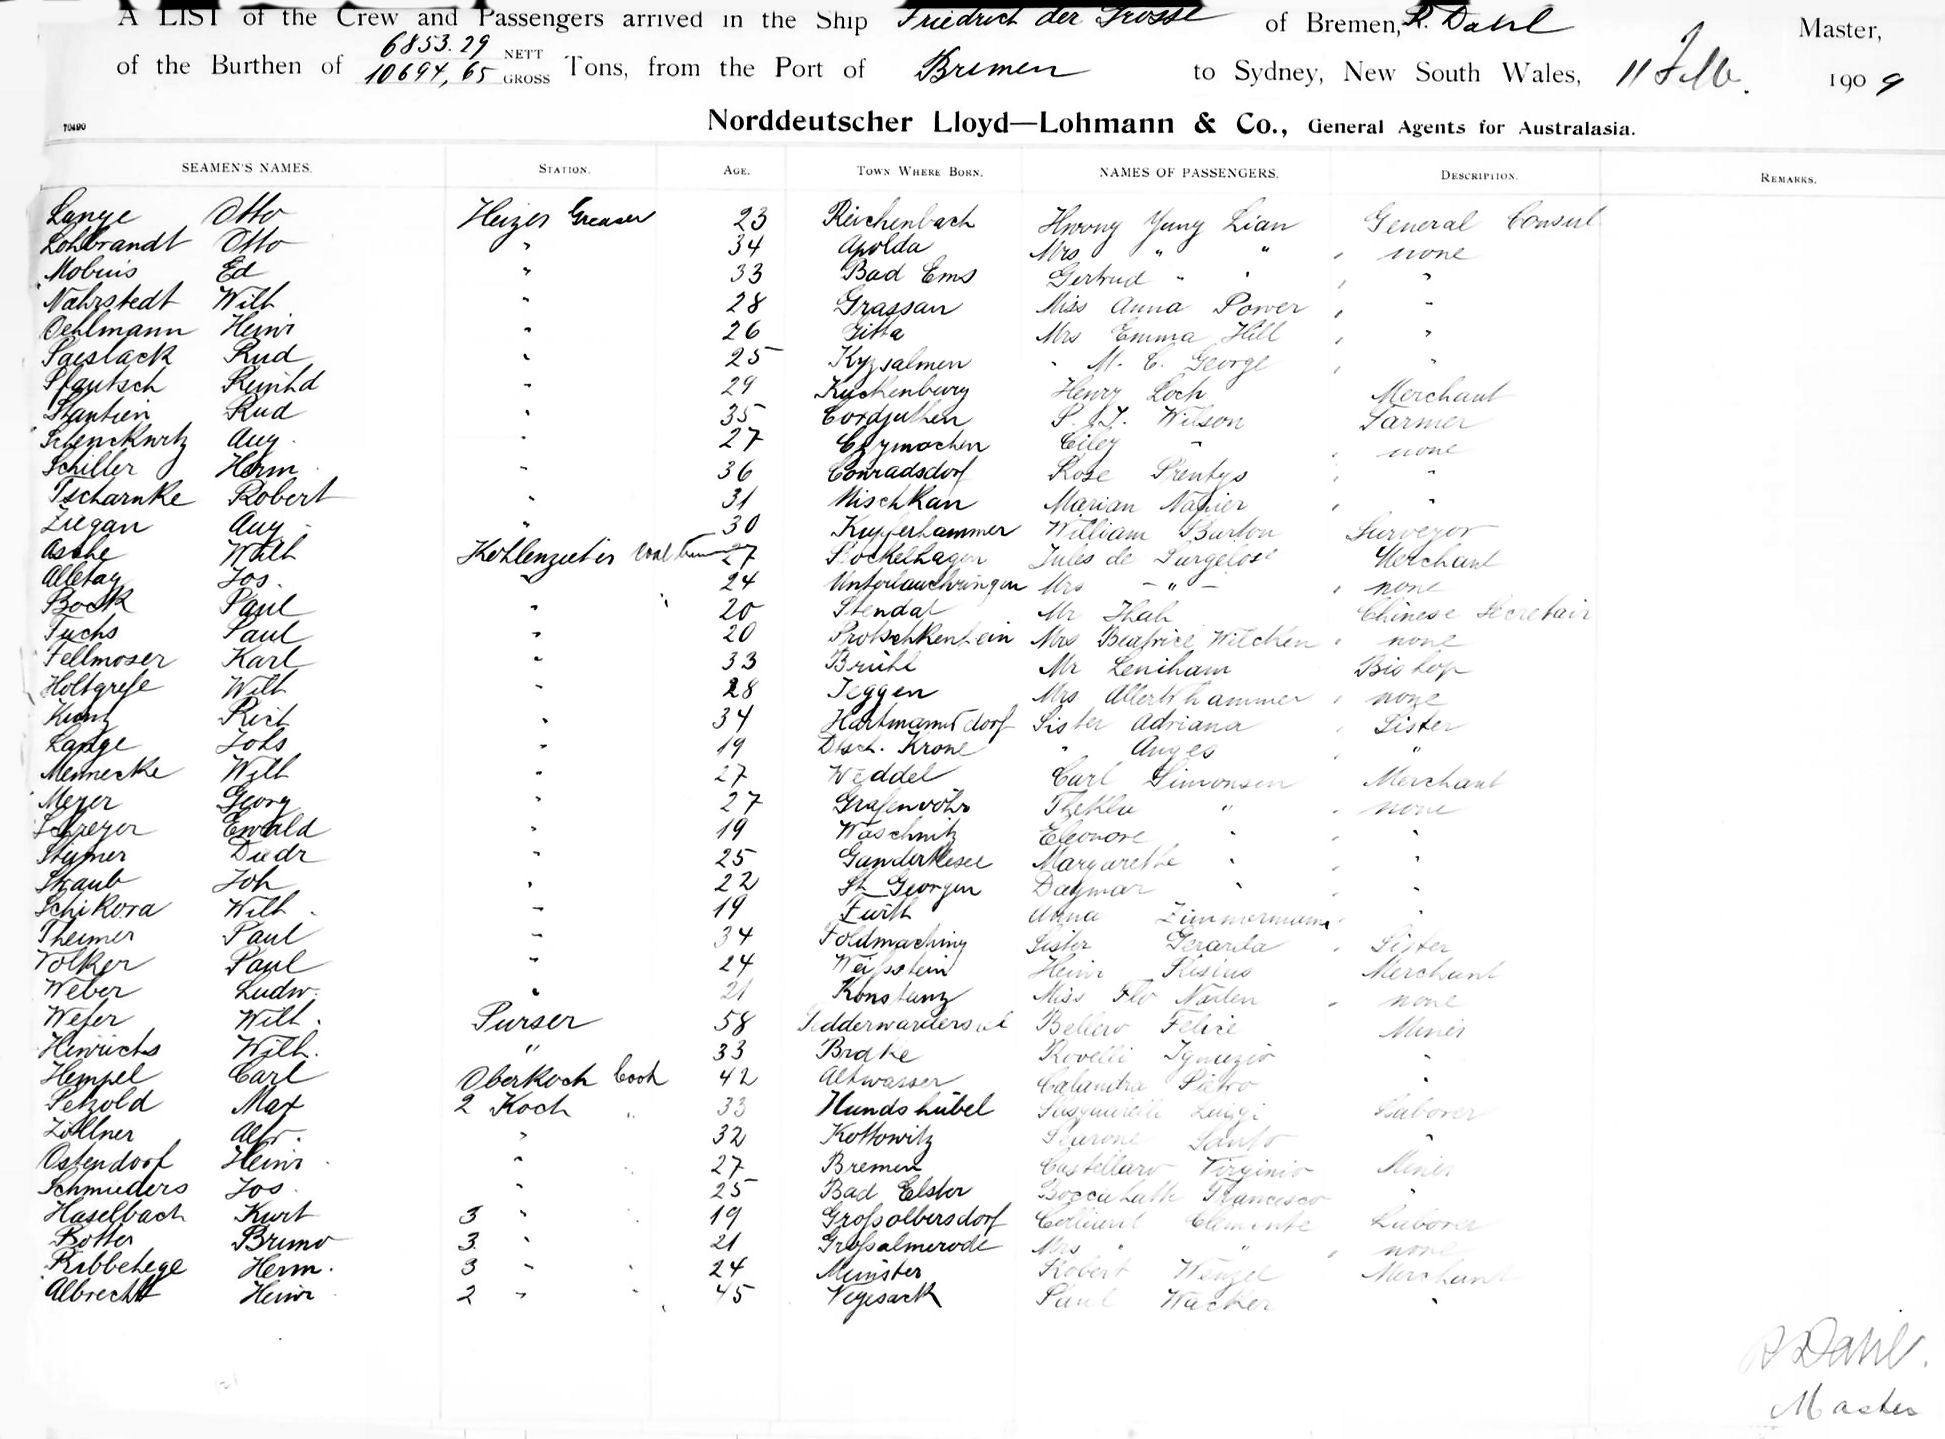 A LIST of the Crew and Passengers arrived in the Ship Friedrich der Grosse of Bremen, R. Dahl Master,
of the Burthen of 6853.29 NETT 10694,65 GROSS Tons, from the Port of Bremen to Sydney, New South Wales, 11 Feb. 1909
70490 Norddeutscher Lloyd—Lohmann & Co., General Agents for Australasia.
SEAMEN'S NAMES. STATION. AGE. TOWN WHERE BORN. NAMES OF PASSENGERS. DESCRIPTION. REMARKS.
Lange Otto Heizer Greaser 23 Reichenbach Hwong Yung Lian General Consul
Lohbrandt Otto " 34 Apolda Mrs " " none
Mobius Ed " 33 Bad Ems Gertrud " " "
Nahrstedt Wilh " 28 Grassau Miss Anna Power "
Oehlmann Heinr " 26 Zitta Mrs Emma Hill "
Paeslack Rud " 25 Kyzsalmen " M. C. George "
Pfautsch Reinhd " 29 Kuckenburg Henry Loch Merchant
Stantien Rud " 35 Cordjuthen S. J. Wilson Farmer
Schenckwitz Aug. " 27 Czymochen Ciley " none
Schiller Herm. " 36 Conradsdorf Rose Prentys "
Tscharnke Robert " 31 Mischkan Marian Napier "
Ziegan Aug. " 30 Kupferhammer William Burton Surveyor
Asche Wilh Kohlenzieher 27 Bockelhagen Jules de Merchant
Alletag Jos. " 24 Unterlauchringen Mrs " none
Bock Paul " 20 Stendal Mr Chinese Secretair
Fuchs Paul " 20 Mrs Beatrice Witchen none
Fellmoser Karl " 33 Brühl Mr Leniham Bishop
Holtgrefe Wilh " 28 Jeggen Mrs none
Kunz Rich " 34 Hartmannsdorf Sister Adriana Sister
Lange Johs " 19 Dtsch. Krone " Anges "
Meinecke Wilh " 27 Weddel Carl Simonsen Merchant
Meyer Georg " 27 Grafenwöhr Thekla " none
Schreyer Ewald " 19 Waschnitz Eleonore " "
Stegmer Diedr " 25 Ganderkesee Margarethe " "
Straub Joh " 22 St Georgen Dagmar " "
Schikora Wilh. " 19 Fürth Anna Zimmermann "
Theimer Paul " 34 Feldmaching Sister Gerarda Sister
Volker Paul " 24 Weisstein Heinr Risius Merchant
Weber Ludw. " 21 Konstanz Miss Flo none
Wefer Wilh. Purser 58 Bellero Felice Miner
Hinrichs Wilh. " 33 Brake Rovelli Ignazio "
Hempel Carl Oberkoch Cook 42 Altwasser Calandra Pietro "
Petzold Max 2 Koch " 33 Hundshübel Luigi Laborer
Zöllner Alfr. " 32 Kottowitz Santo "
Ostendorf Heinr. " 27 Bremen Castellaro Virginio Miner
Schmieders Jos. " 25 Bad Elster Francesco "
Haselbach Kurt 3 " 19 Grossolbersdorf Clemente Laborer
Rotter Bruno 3 " 21 Grossalmerode Mrs " " none
Ribbehege Herm. 3 " 24 Münster Robert Wenzel Merchant
Albrecht Heinr. 2 " 45 Vegesack Paul Wacker "
R Dahl.
Master